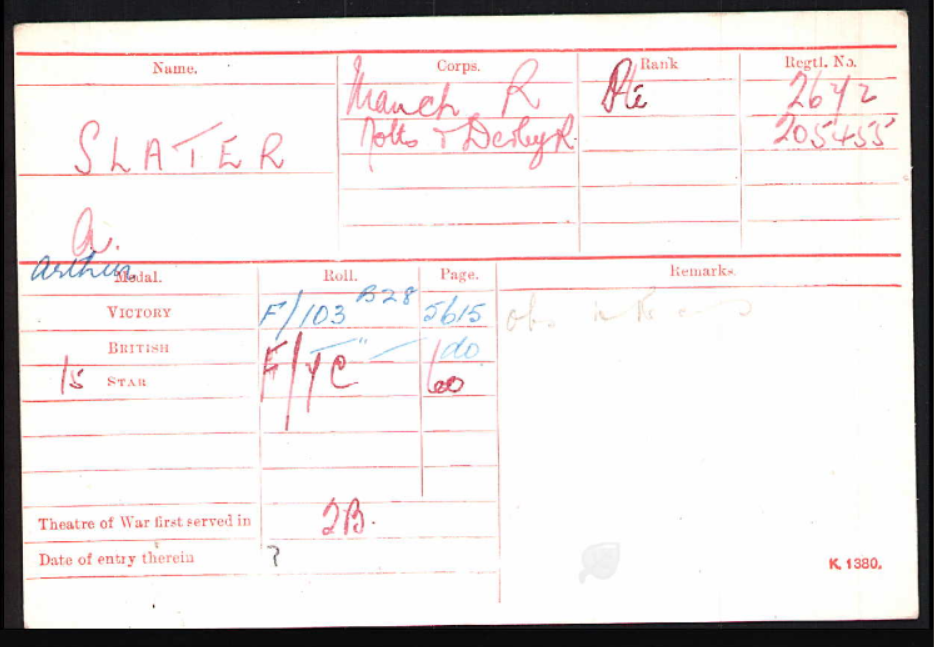 Name. Corps. Rank Regtl. No.
Manch R Pte 2642
SLATER Notts & Derby R. 205455
A.
Arthur
Medal. Roll. Page. Remarks.
VICTORY F/103 B28 5615
BRITISH — " — do
15 STAR
Theatre of War first served in 2B.
Date of entry therein ?
K. 1380.